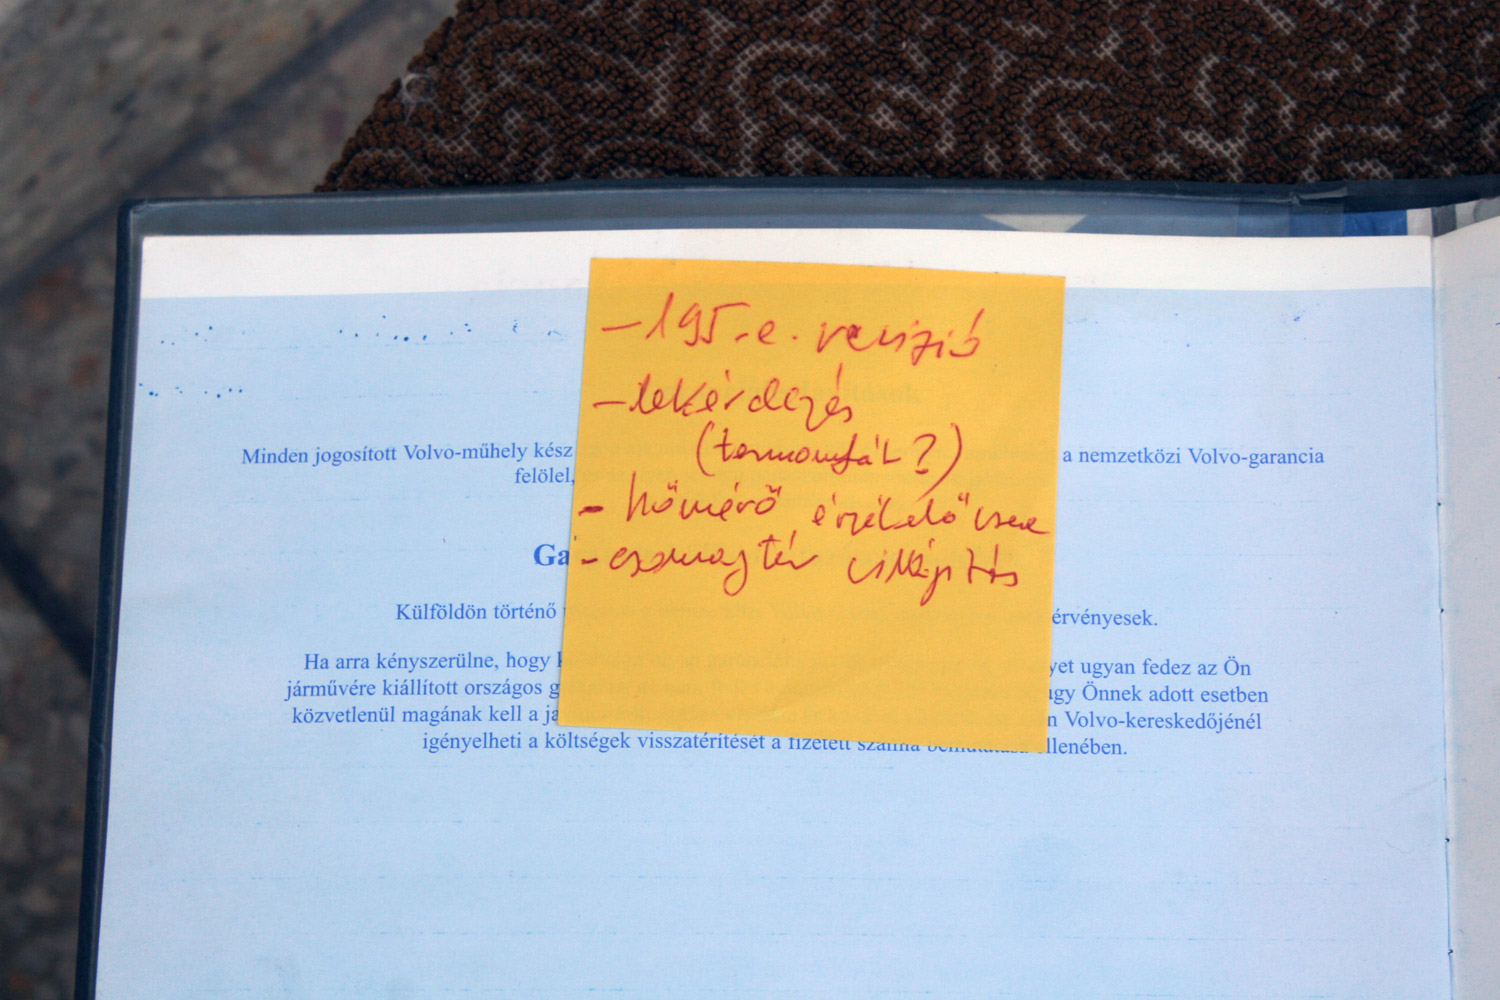 - 195.e. revízió
- lekérdezés
(termosztát?)
- hőmérő érzékelő csere
- csomagtér világítás
Minden jogosított Volvo-műhely kész a nemzetközi Volvo-garancia
felölel,
Ga
Külföldön történő érvényesek.
Ha arra kényszerülne, hogy yet ugyan fedez az Ön
járművére kiállított országos úgy Önnek adott esetben
közvetlenül magának kell a Volvo-kereskedőjénél
igényelheti a költségek visszatérítését a fizetett számla bemutatása ellenében.